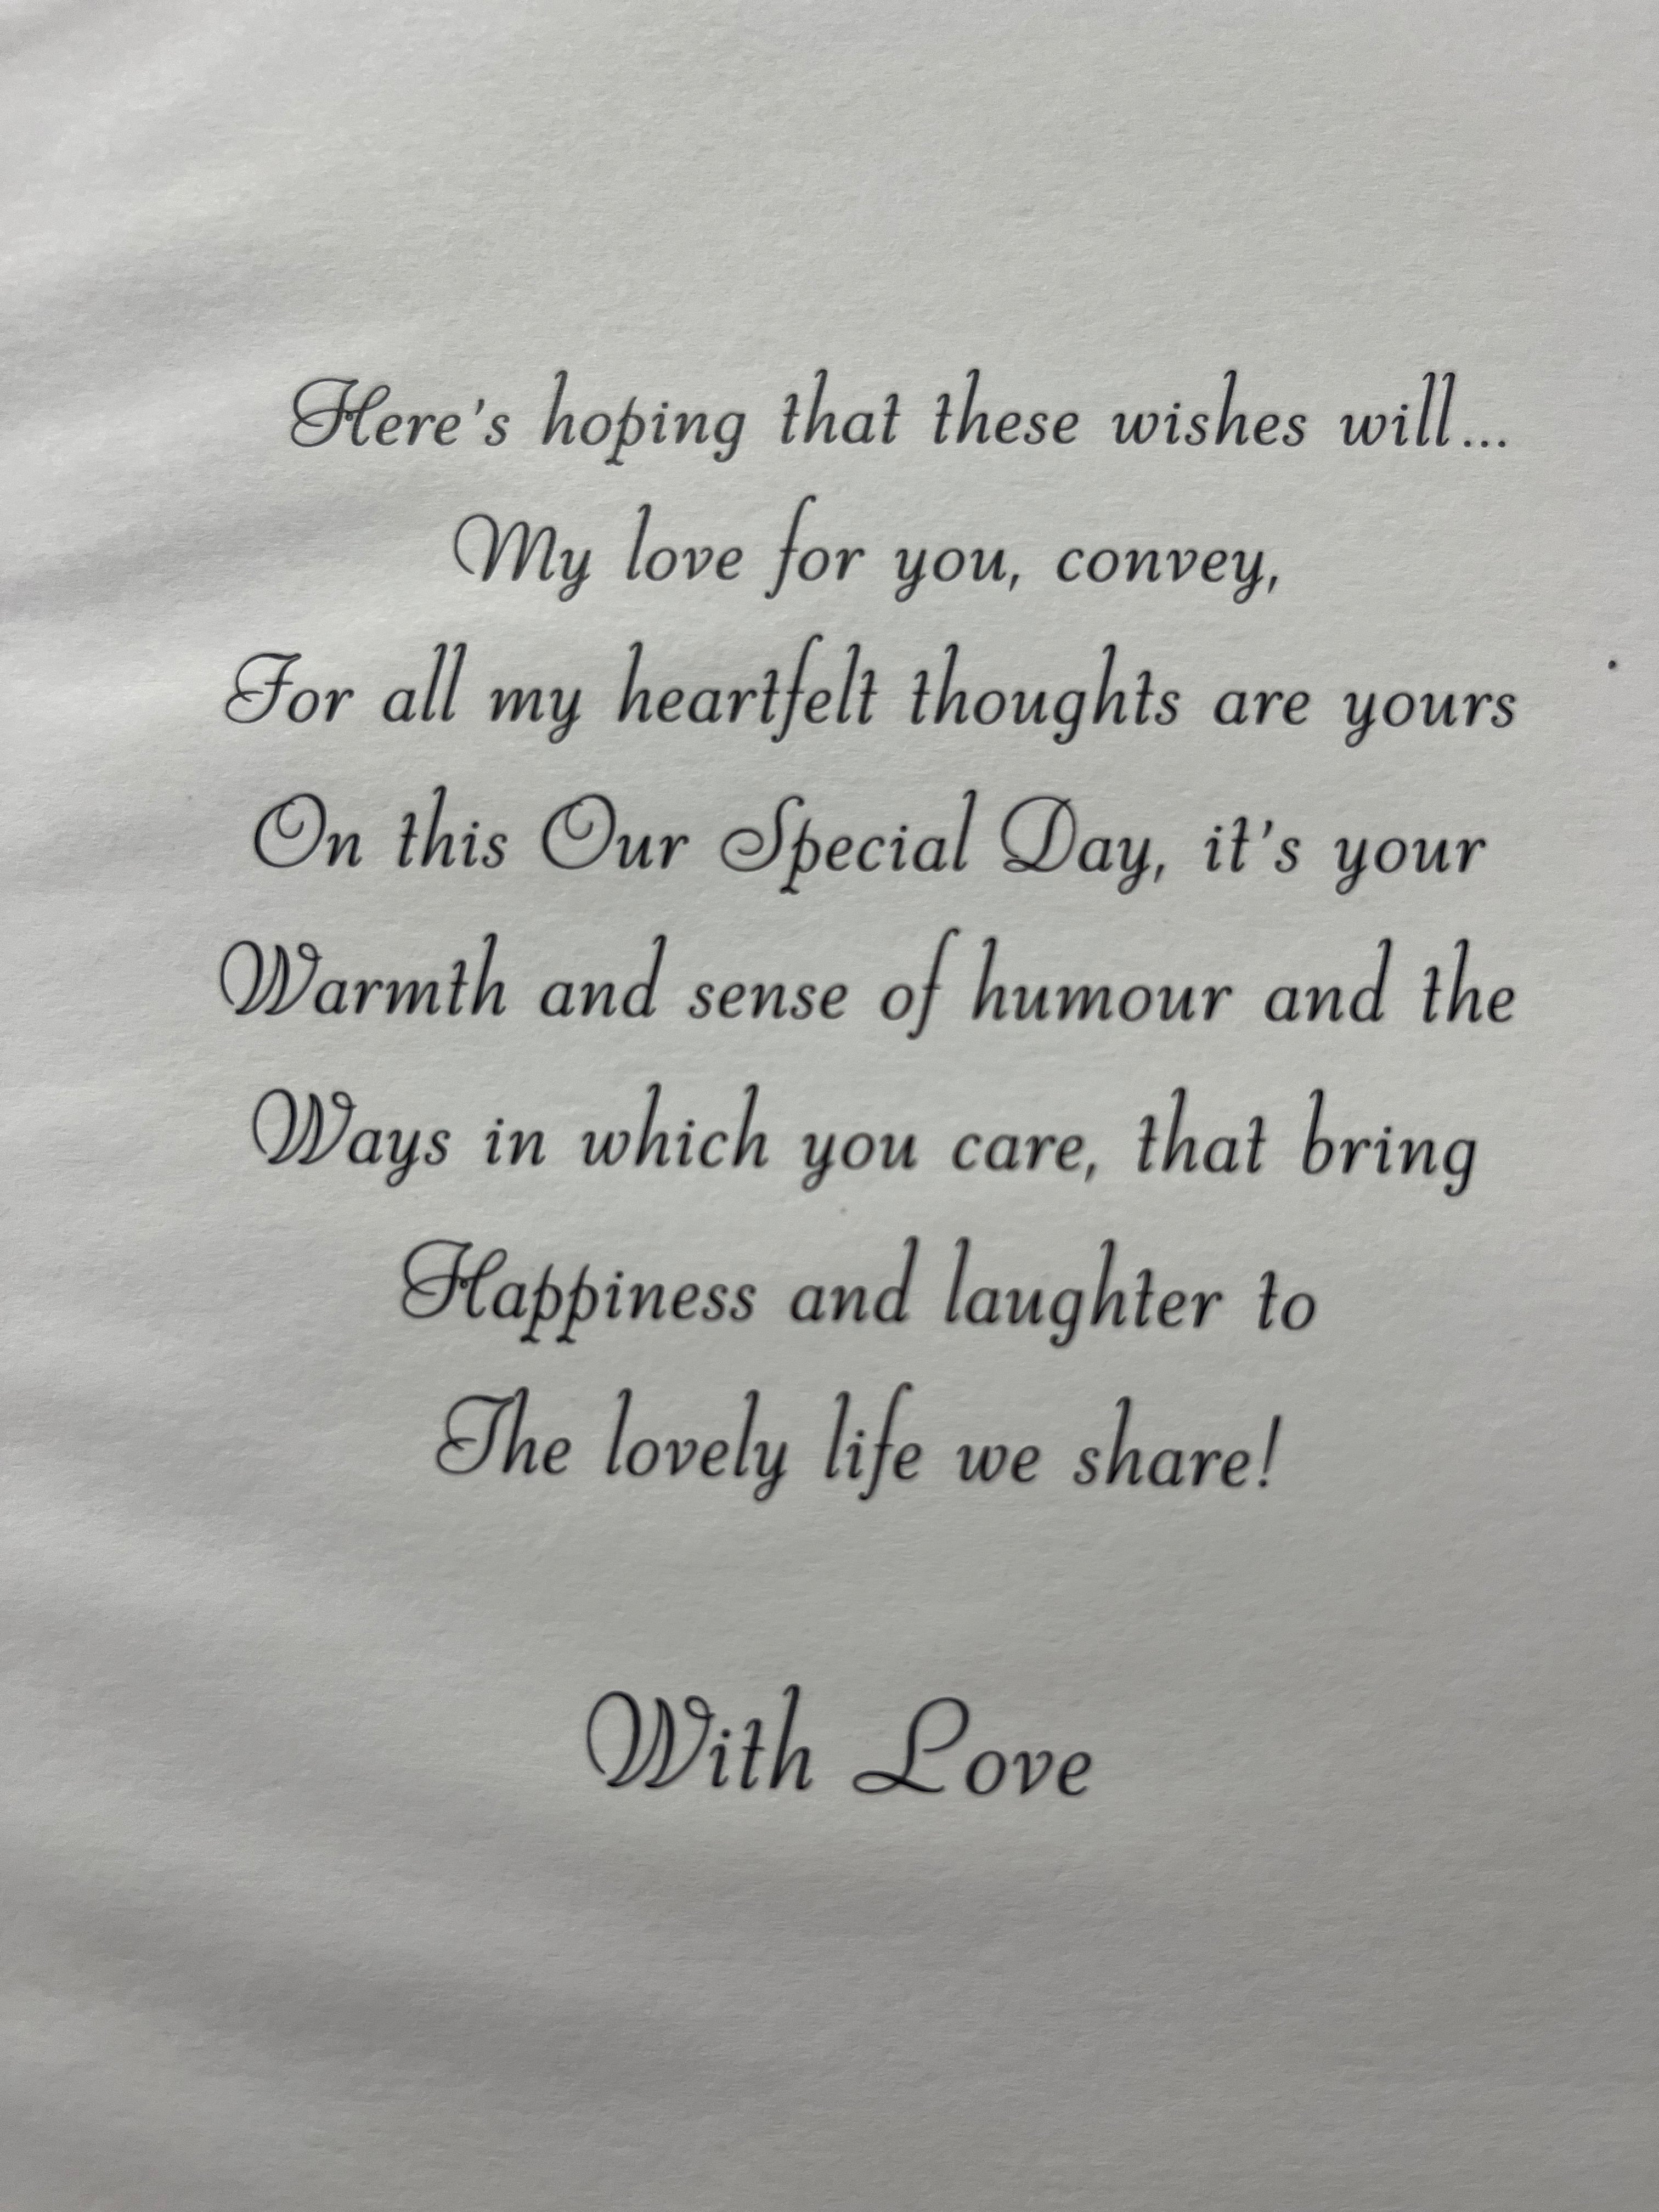 Here's hoping that these wishes will...
My love for you, convey,
For all my heartfelt thoughts are yours
On this Our Special Day, it's your
Warmth and sense of humour and the
Ways in which you care, that bring
Happiness and laughter to
The lovely life we share!
With Love